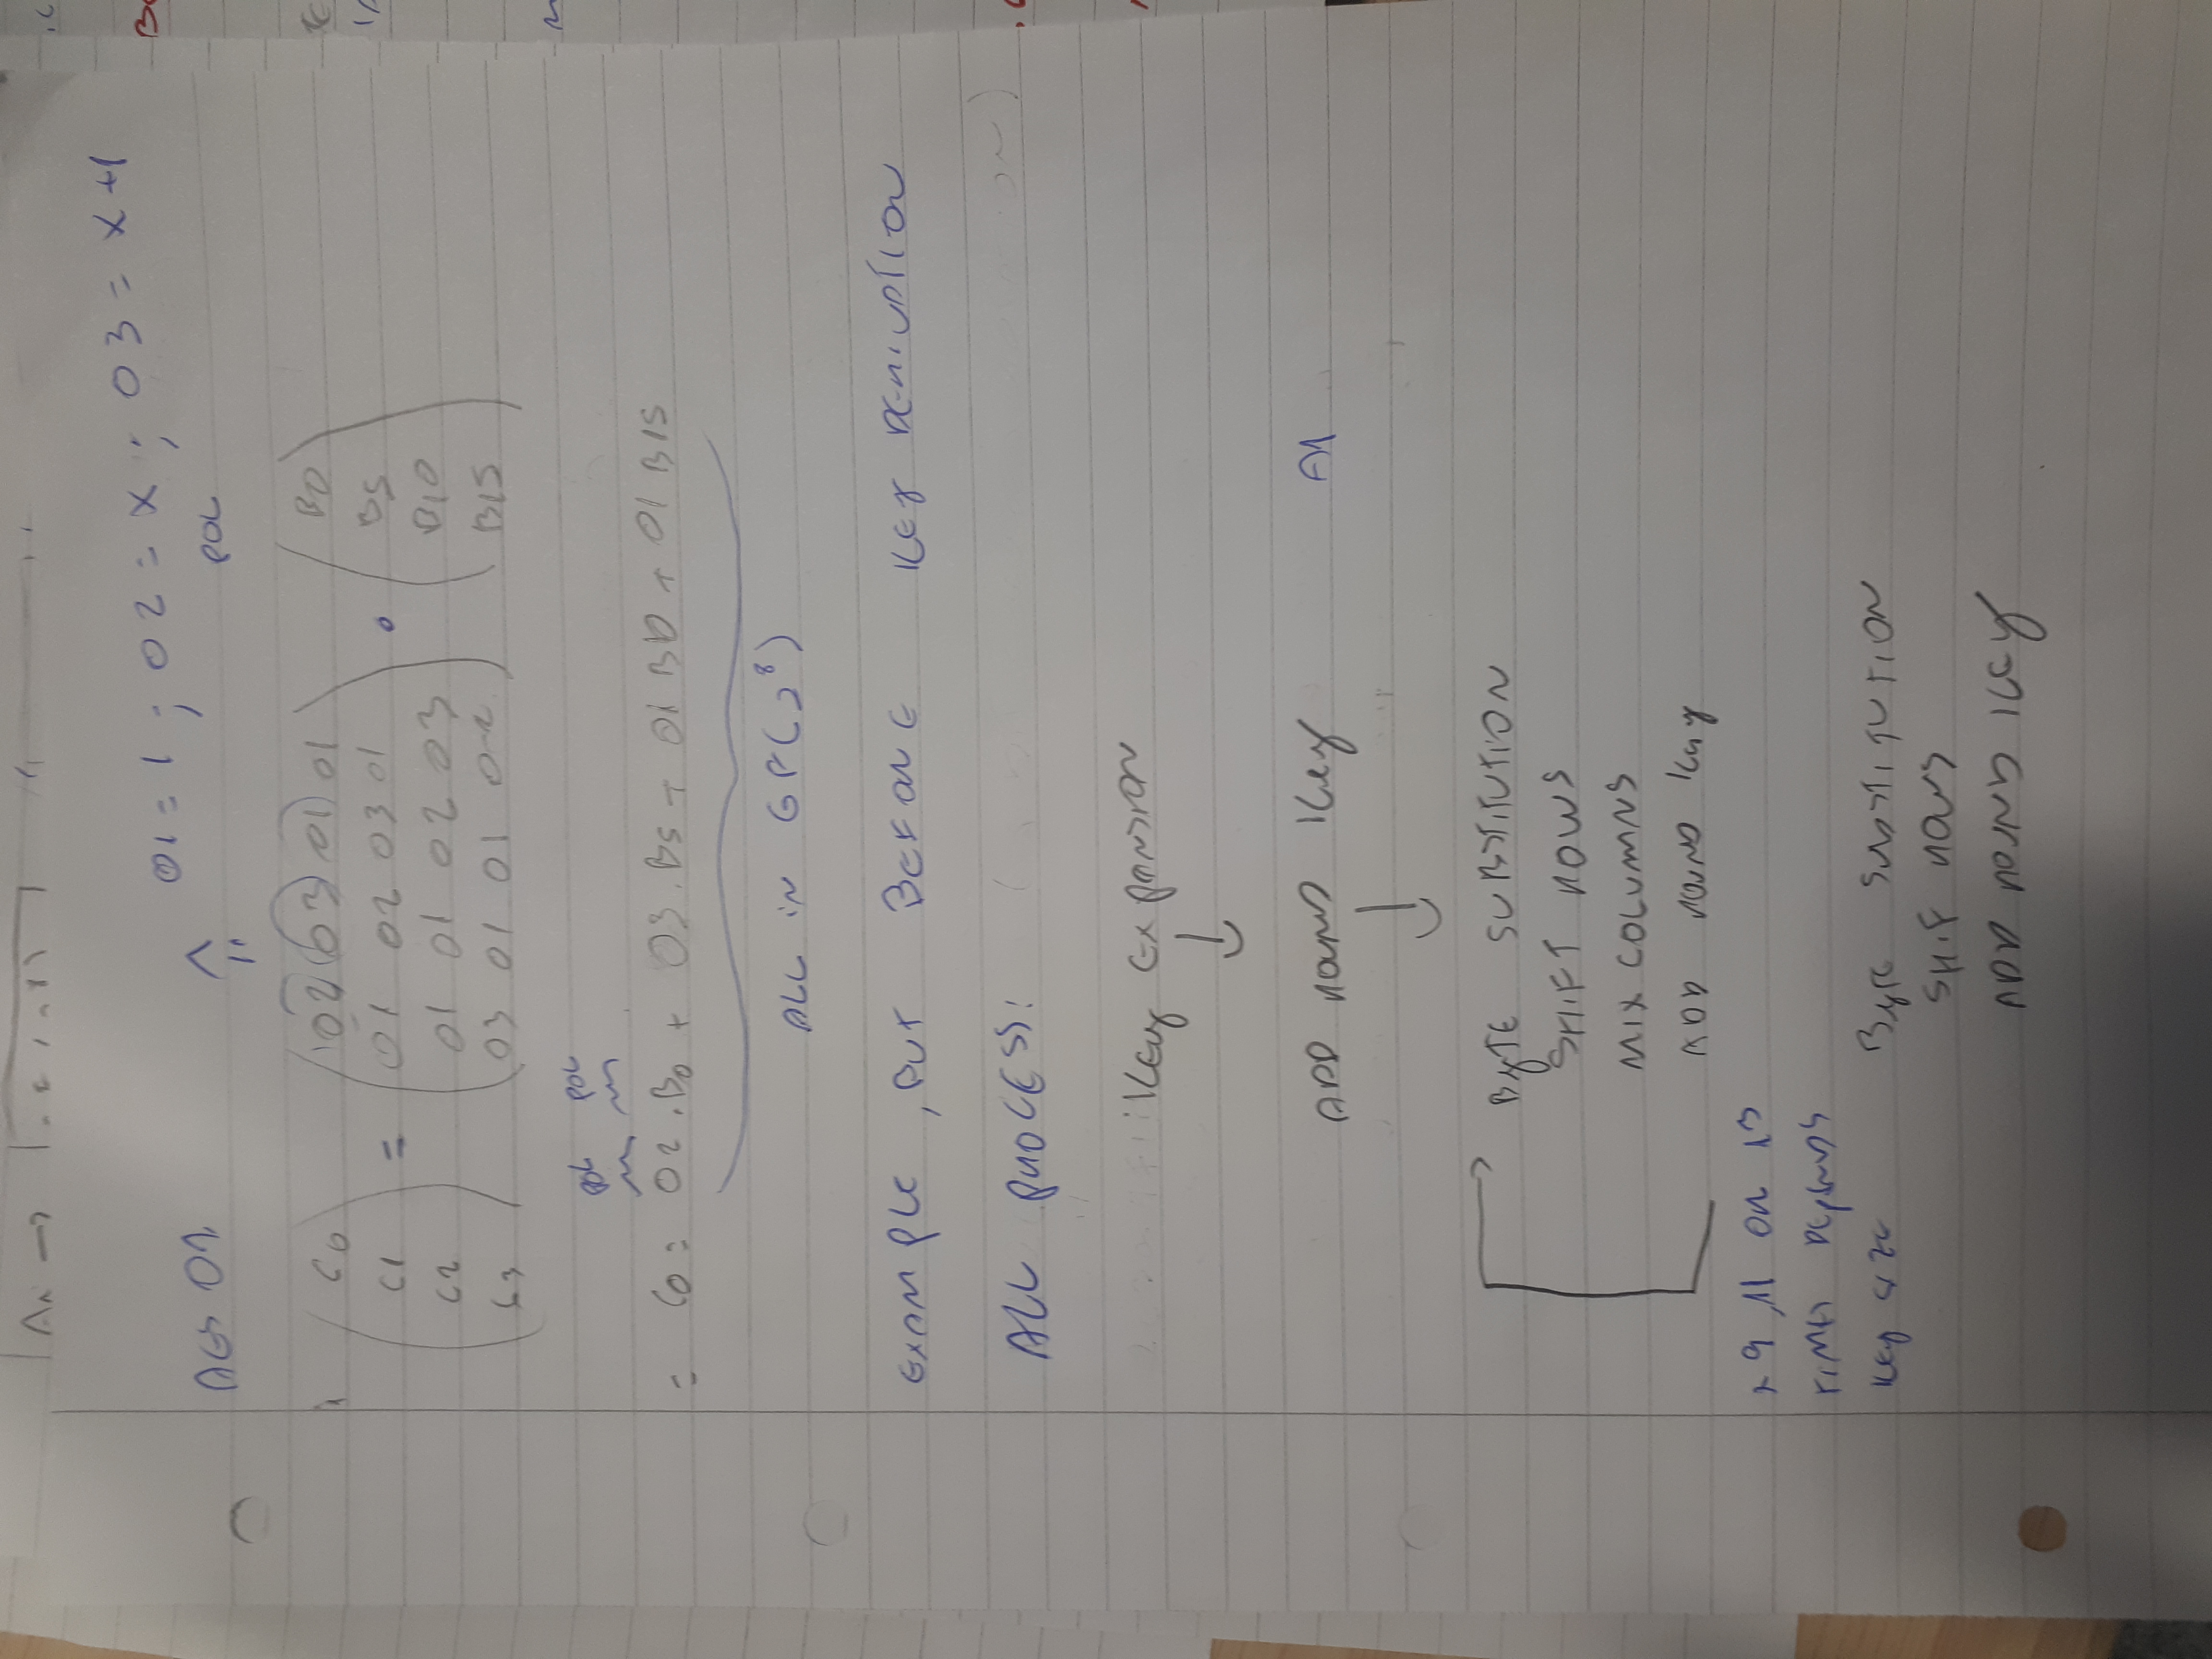 01 = 1 ; 02 = x ; 03 = x+1
POL
C0 02 03 01 01 B0
C1 = 01 02 03 01 · B5
C2 01 01 02 03 B10
C3 03 01 01 02 B15
POL POL
= C0 = 02 . B0 + 03 . B5 + 01 B10 + 01 B15
ALL IN GF(2^8)
EXAMPLE , BUT BEFORE KEY DERIVATION
ALL PROCESS:
KEy EXPANSION
↓
ADD ROUND Key A1
↓
ByTE SUBSTITUTION
SHIFT ROWS
MIX COLUMNS
ADD ROUND Key
x 9 , 11 OR 13
TIMES DEPENDS
Key SIZE
ByTE SUBSTITUTION
SHIF ROWS
ADD ROUND KEy